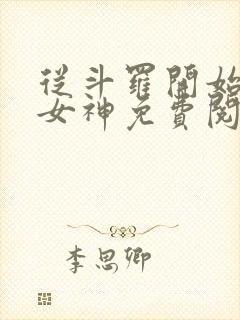 從斗羅開始
女神免費閱
李思卿